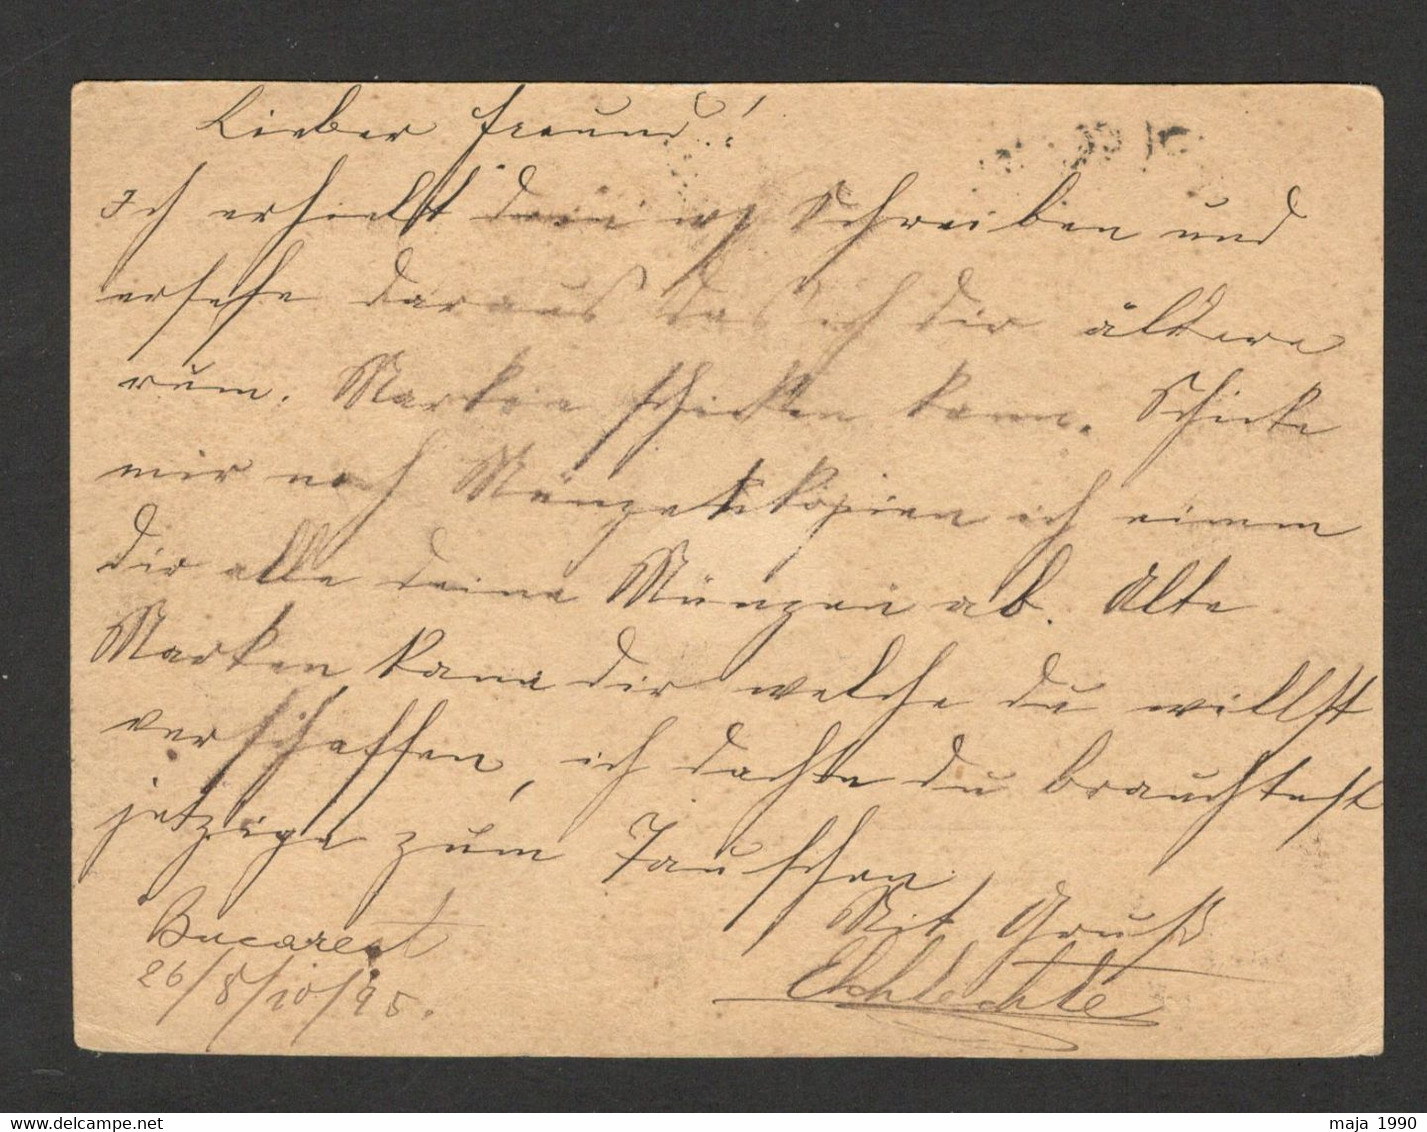 Lieber Freund!
Ich erhielt dein Schreiben und
ersehe daraus das ich dir ältere
rum. Marken schicken kann. Schicke
mir noch ich
dir alle deine Münzen ab. Alte
Marken kann dir welche du willst
verschaffen, ich dachte du brauchtest
jetzige zum Tauschen.
Mit Gruß
Bucarest
26/8/10/95.
maja 1990